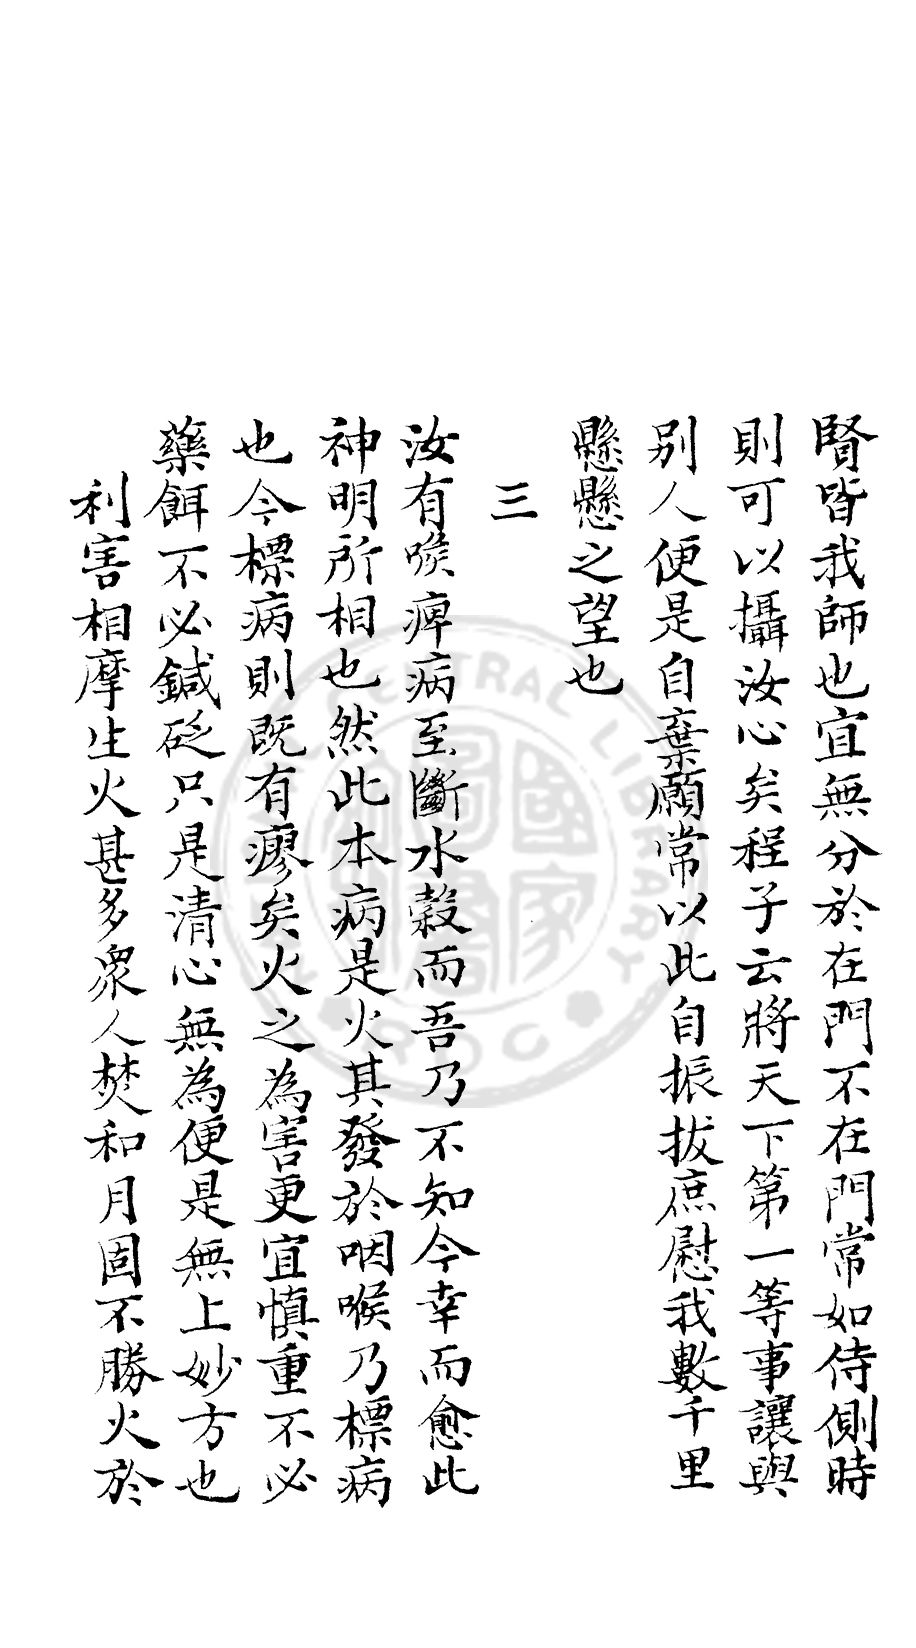 賢皆我師也宜無分於在門不在門常如侍側時
則可以攝汝心矣程子云將天下第一等事讓與
別人便是自棄願常以此自振拔庶慰我數千里
懸懸之望也
三
汝有喉痺病至斷水穀而吾乃不知今幸而愈此
神明所相也然此本病是火其發於咽喉乃標病
也今標病則既有瘳矣火之為害更宜慎重不必
藥餌不必鍼砭只是清心無為便是無上妙方也
利害相摩生火甚多衆人焚和月固不勝火於
CENTRAL LIBRARY
國家圖書館